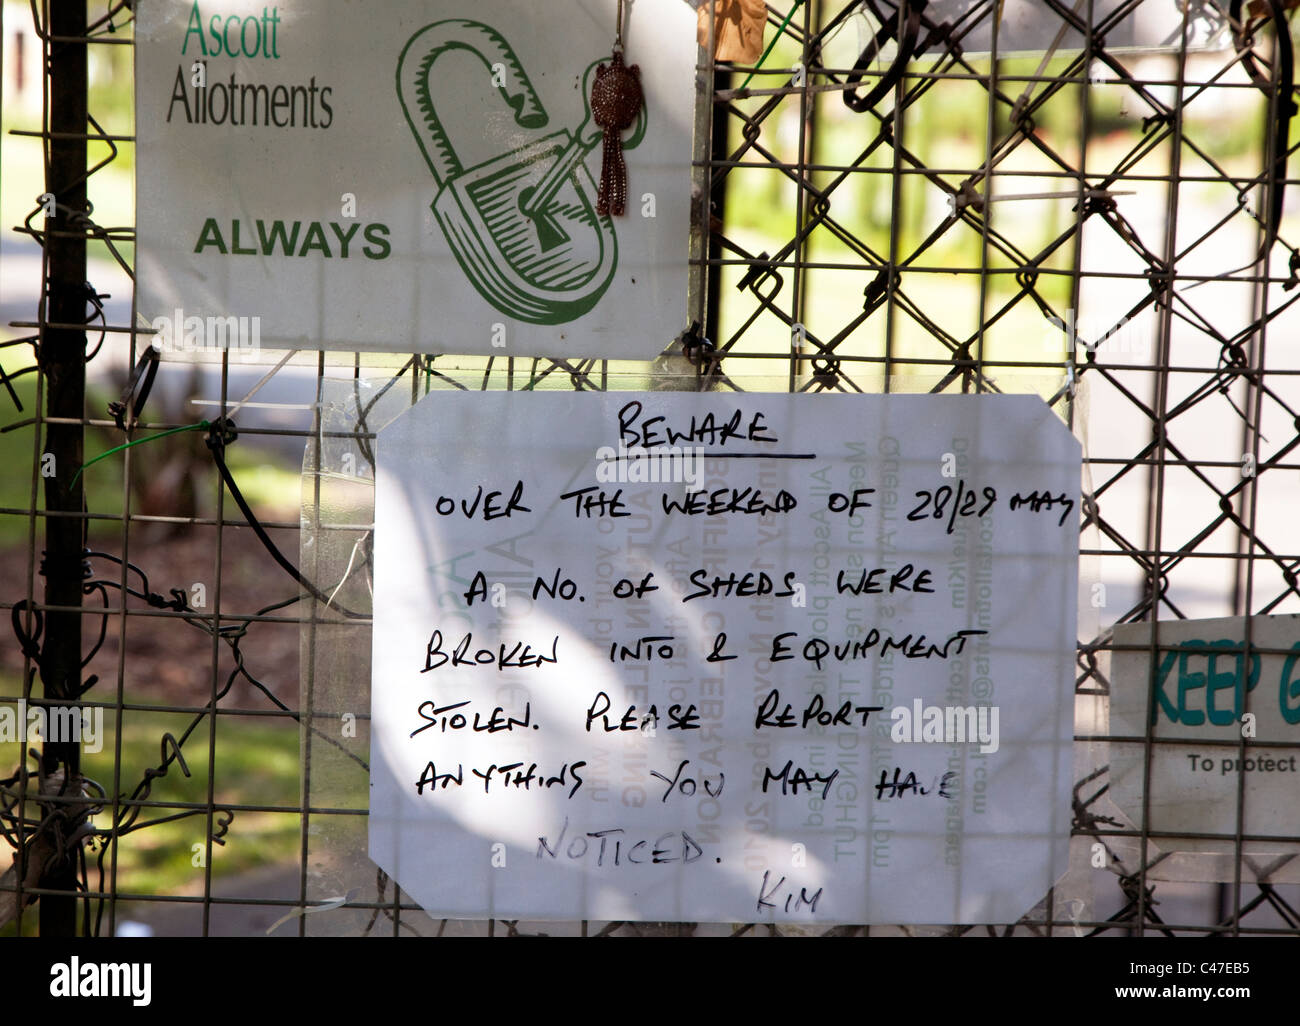 Ascott
Allotments
ALWAYS
BEWARE
OVER THE WEEKEND OF 28/29 MAY
A NO. OF SHEDS WERE
BROKEN INTO & EQUIPMENT
STOLEN. PLEASE REPORT
ANYTHING YOU MAY HAVE
NOTICED.
KIM
KEEP G
To protect
alamy
Image ID: C47EB5
www.alamy.com